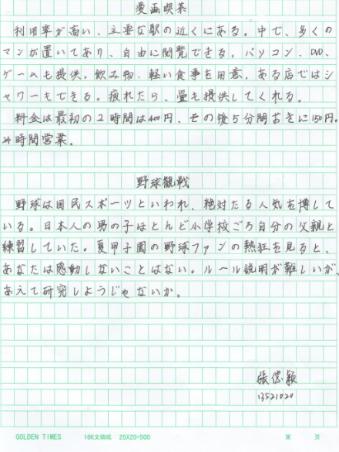 漫画喫茶
利用率が高い、主要な駅の近くにある。中で、多くの
マンガ置いてあり、自由に閲覧できる。パソコン、DVD、
ゲームも提供。飲み物、軽い食事を用意、ある店ではシ
ャワーもできる。疲れたら、畳も提供してくれる。
料金は最初の2時間は400円、その後5分間おきに150円。
24時間営業。
野球観戦
野球は国民スポーツといわれ、絶対たる人気を博して
いる。日本人の男の子ほとんど小学校ごろ自分の父親と
練習していた。夏甲子園の野球ファンの熱狂を見ると、
あなたは感動しないことはない。ルール説明が難しいが、
あえて研究しようじゃないか。
13521020
GOLDEN TIMES 16K文稿紙 20X20=500 第 页